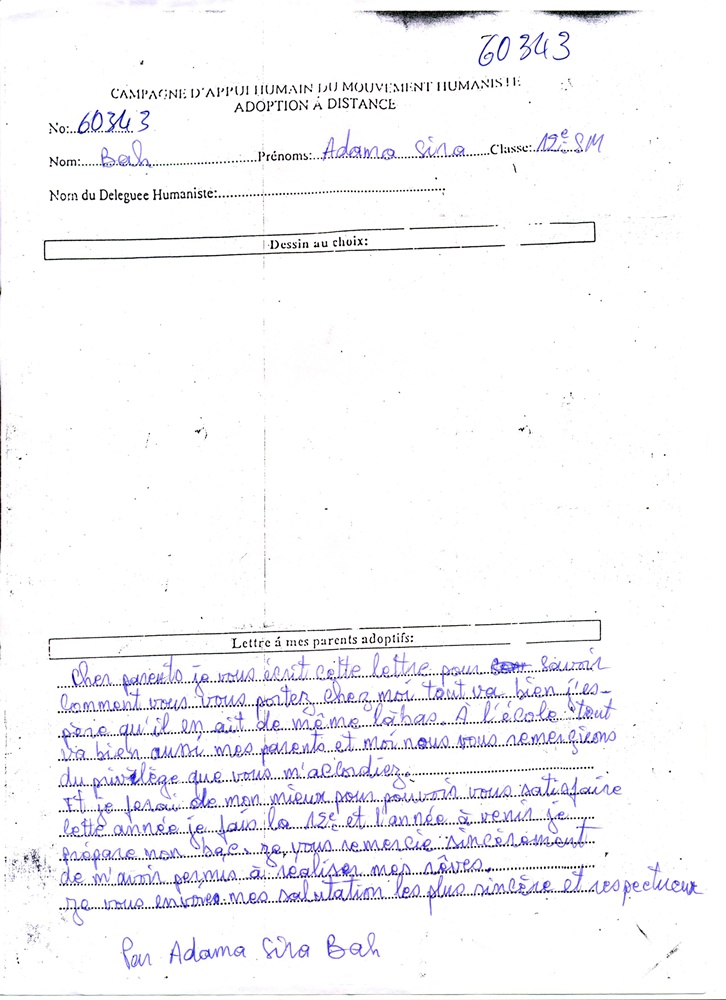 60343
CAMPAGNE D'APPUI HUMAIN DU MOUVEMENT HUMANISTE
ADOPTION À DISTANCE
No: 60343
Nom: Bah Prénoms: Adama Sira Classe: 12e SM
Nom du Deleguee Humaniste:
Dessin au choix:
Lettre á mes parents adoptifs:
Cher parents je vous écrit cette lettre pour savoir
comment vous vous portez, chez moi tout va bien j'es-
père qu'il en ait de même labas. À l'école tout
va bien aussi mes parents et moi nous vous remerçions
du privilège que vous m'accordiez.
Et je ferai de mon mieux pour pouvoir vous satisfaire
cette année je fais la 12e et l'année à venir je
prépare mon bac. je vous remercie sincèrement
de m'avoir permis à réaliser mes rêves.
je vous envoies mes salutation les plus sincère et respectueux
Par Adama Sira Bah